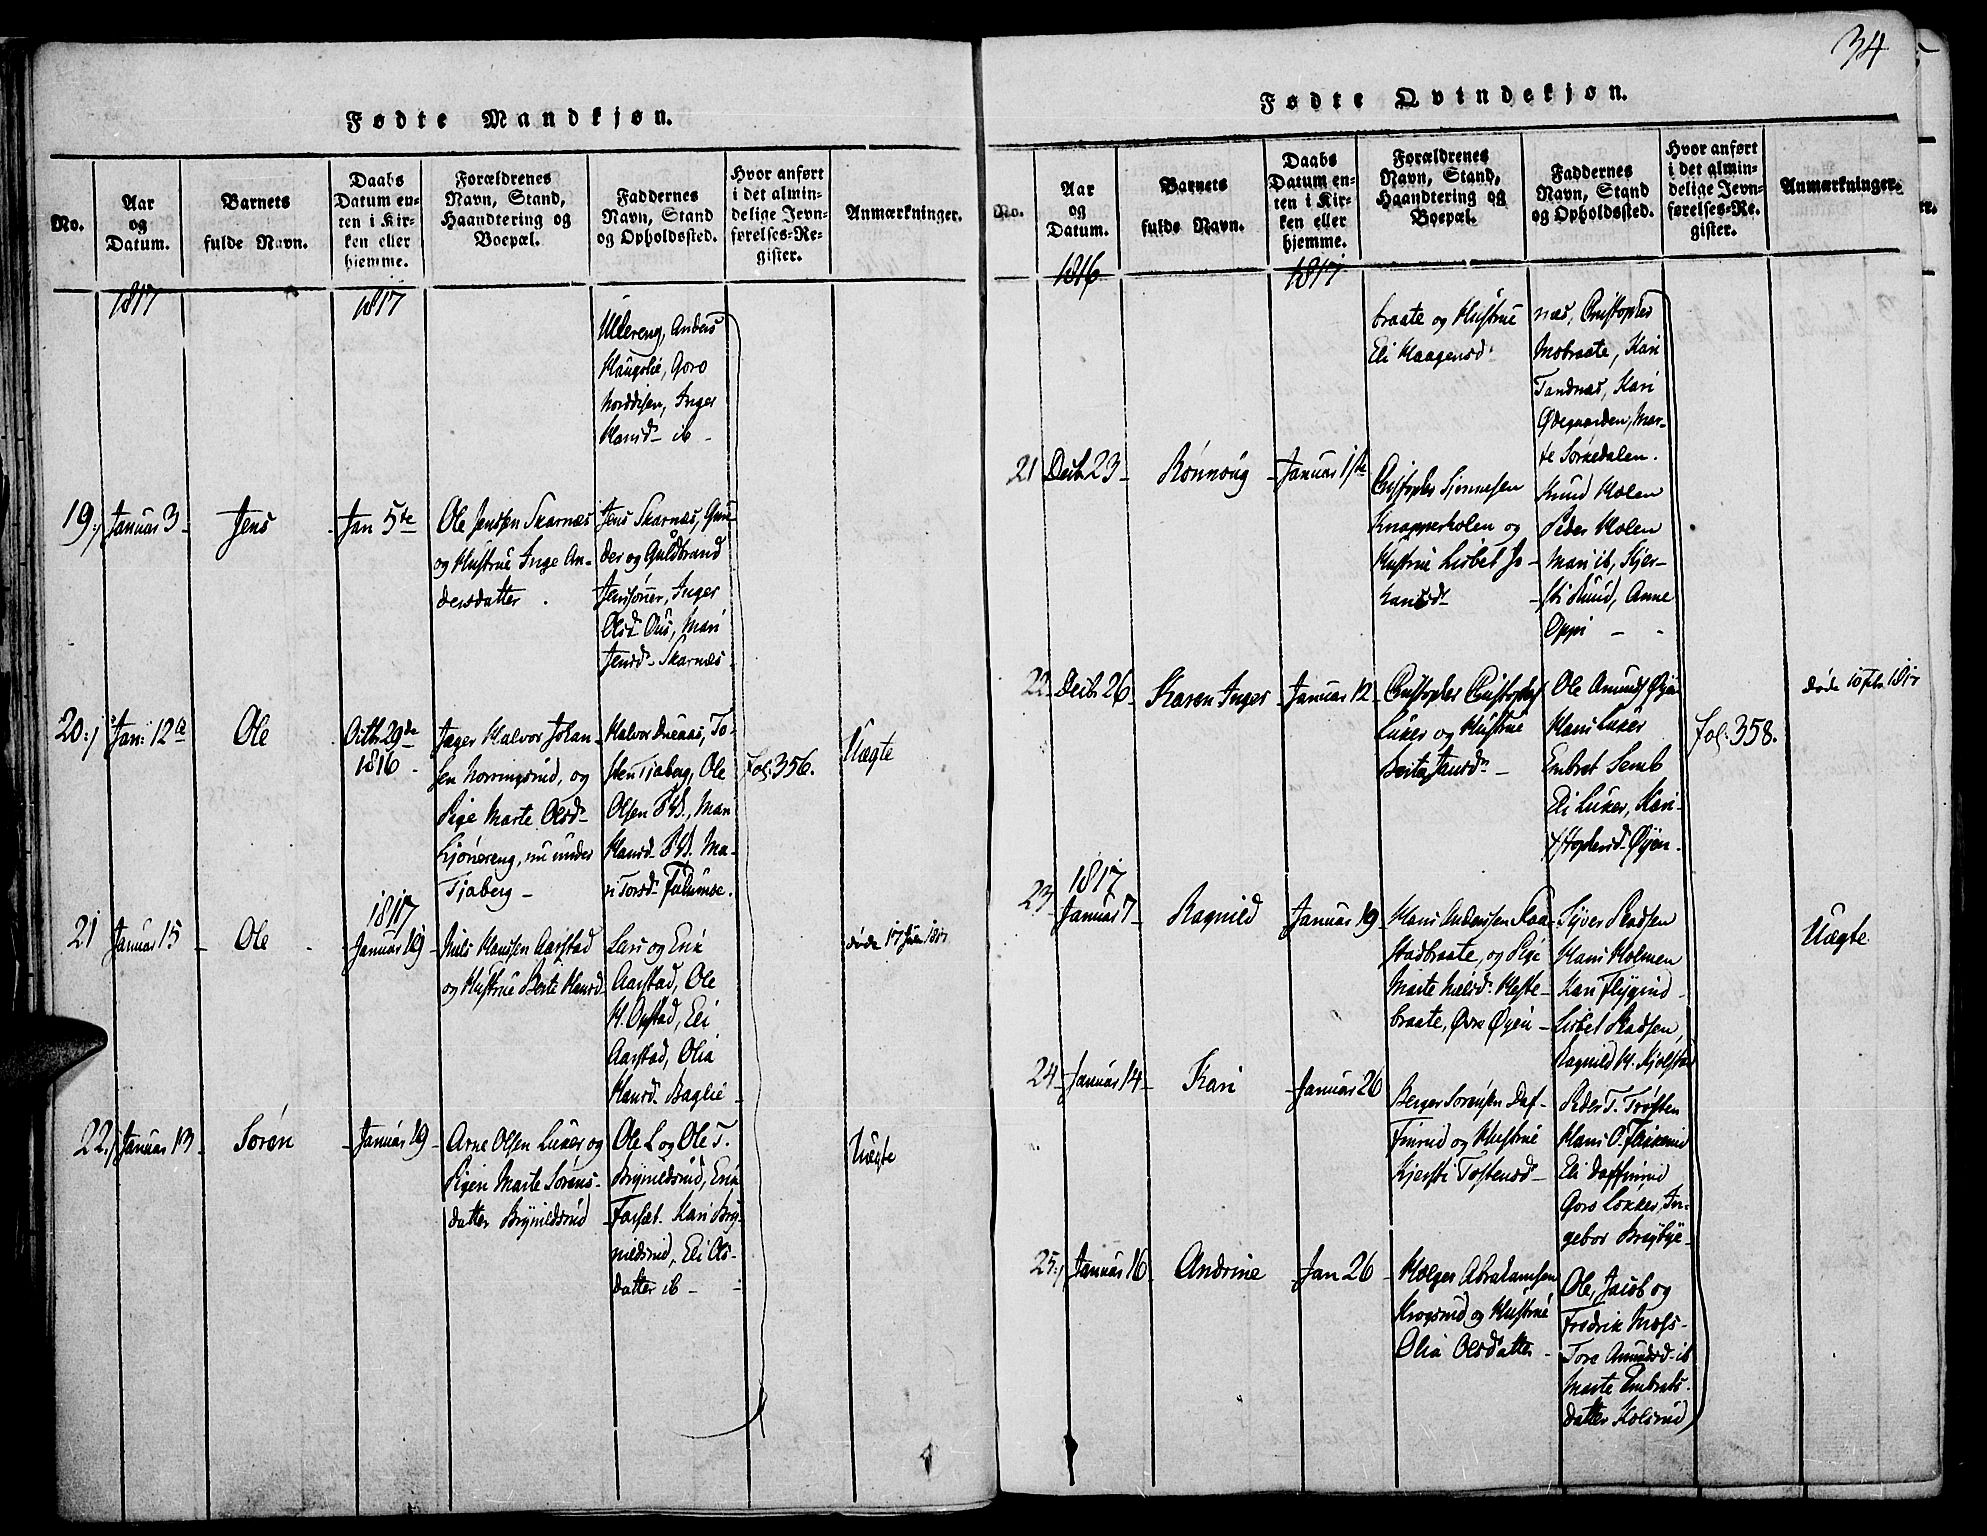 34
Fødte Mandkjøn.
No.
Aar
og
Datum.
Barnets
fulde Navn.
Daabs
Datum en-
ten i Kir-
ken eller
hjemme.
Forældrenes
Navn, Stand,
Haandtering og
Boepæl.
Faddernes
Navn, Stand
og Opholdssted.
Hvor anført
i det almin-
delige Jevn-
førelses-Re-
gister.
Anmærkninger.
1817
1817
Ullereng, Anders
Haugslie, Goro
Norddisen, Inger
Hansd- ib -
19./ Januar 3 -
Jens
- Jan 5te
Ole Jenssen Skarnæs
og Hustrue Inge An-
dersdatter.
Jens Skarnæs, Gun-
der og Guldbrand
Jenssøner, Inger
Olsd- Ous, Mari
Jensd- Skarnæs-
20./ Jan: 12te
Ole
Octbr 29de
1816.
Jæger Halvor Johan-
sen Norringsrud, og
Pige Marte Olsd-
Kjønereng, nu under
Tjaberg -
Halvor Sneaas, To-
sten Tjaberg, Ole
Olsen ibd., Mari
Hansd- ibd. Ma-
ri Torsd-
fol. 356.
Uægte
21 Januar 15 -
Ole
1817
Januar 19
Niels Hanssen Aarstad
og Hustrue Berte Hansd-
Lars og Erik
Aarstad, Ole
H. Opstad, Eli
Aarstad, Olia
Hansd- Baglie -
døde 17 Jan 1817
22./ Januar 13 -
Søren
- Januar 19 -
Arne Olsen Luker og
Pigen Marte Sørens-
datter Brynildsrud
Ole L og Ole T.
Brynildsrud, Erik
Farsæt. Kari Bry-
nildsrud, Eli Ols-
datter ib -
Uægte
Fødte Qvindekjøn.
No.
Aar
og
Datum.
Barnets
fulde Navn.
Daabs
Datum en-
ten i Kir-
ken eller
hjemme.
Forældrenes
Navn, Stand,
Haandtering og
Boepæl.
Faddernes
Navn, Stand
og Opholdssted.
Hvor anført
i det almin-
delige Jevn-
førelses-Re-
gister.
Anmærkninger.
1816
1817
braate og Hustrue
Eli Haagensd-
næs, Christopher
Mobraate, Kari
Tandnæs, Kari
Ødegaarden, Mar-
te Sørkedalen.
21 Decbr 23 -
Rønnoug
- Januar 1ste
Christopher Simensen
Knapperholen og
Hustrue Lisbet Jo-
hansd-
Knud Holen
Peder Holen
Mari ib, Kjer-
sti Rund, Anne
Oppi - -
22 Decbr 26 -
Karen Inger
- Januar 12 -
Christopher Christophs:
Luker og Hustrue
Berte Jansd-
Ole Amunds Øyen
Hans Luker
Embret Semb
Eli Luker, Kari
Xstophersd- Øyen -
fol. 358.
døde 10 Feb. 1817
1817
23 - Januar 7 -
Ragnild
Januar 19 -
Hans Anderssen Raa-
stadbraate, og Pige
Marte Nielsd- Heste-
braate, Øvre Øyen -
Syver Madsen
Hans Holmen
Kari Flygind -
Lisbet Madsen,
Ragnild H. Kjølstad
Uægte
24 - Januar 14 -
Kari
- Januar 26
Berger Sørensen Daf-
finrud og Hustrue
Kjersti Tostensd -
Peder T. Trøften
Hans O.
Eli Daffinrud
Goro Løkker, In-
gebor Brøbye -
25./ Januar 16 -
Andrine
- Jan 26 -
Holger Abrahamsen
Krogsrud og Hustrue
Olia Olsdatter -
Ole, Jacob og
Fredrik Moss -
Tore Amundsd- ib
Marte Embrets-
datter Holsrud